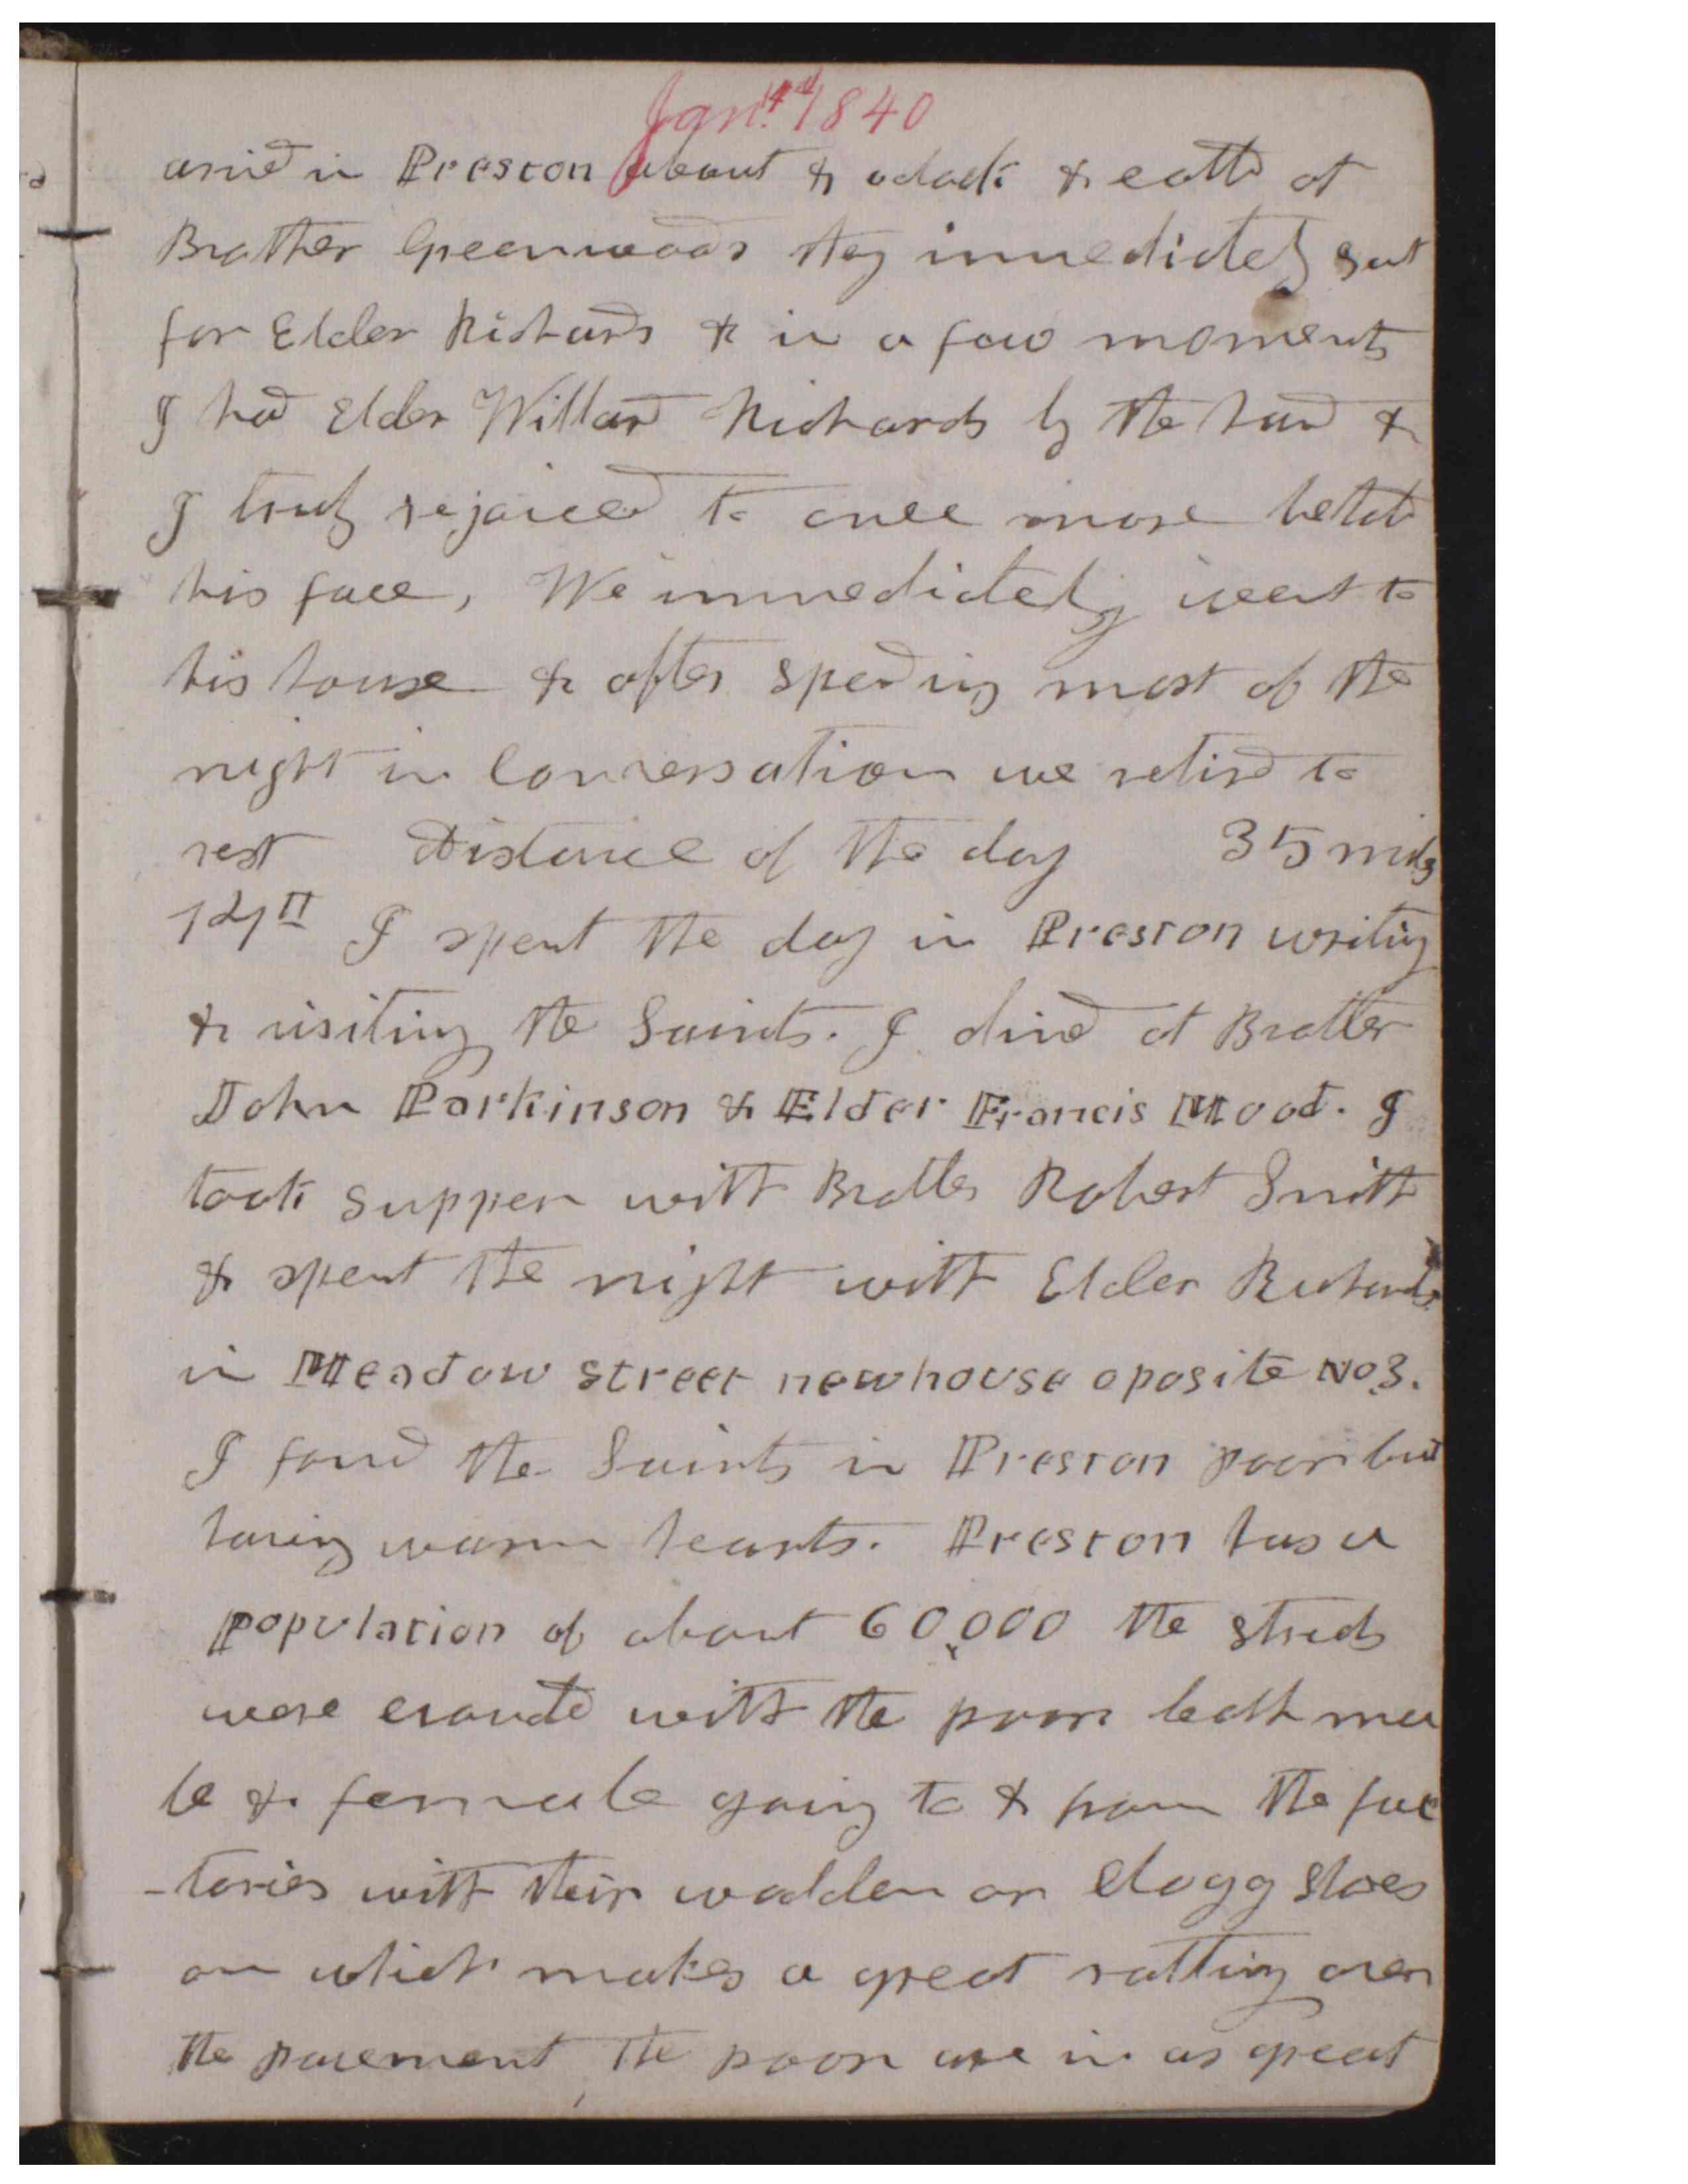 Jan. 14th 1840
arivd in Preston about & oclock & calld at
Brother Greenwoods they immediately sent
for Elder Richards & in a few moments
I had Elder Willard Richards by the hand &
I truly rejoiced to once more behold
his face, We immediately went to
his house & after spending most of the
night in Conversation we retird to
rest Distance of the day 35 miles
14th I spent the day in Preston writing
& visiting the Saints. I dined at Brother
John Parkinson & Elder Francis Mood. I
took supper with Brother Robert Smith
& spent the night with Elder Richards
in Meadow street newhouse oposite No 3.
I found the Saints in Preston poor but
having warm hearts. Preston has a
population of about 60,000 the streets
were croudd with the poor both ma
le & female going to & from the fac
-tories with their wodden or clogg shoes
on which makes a great rattling over
the pavement, the poor are in as great